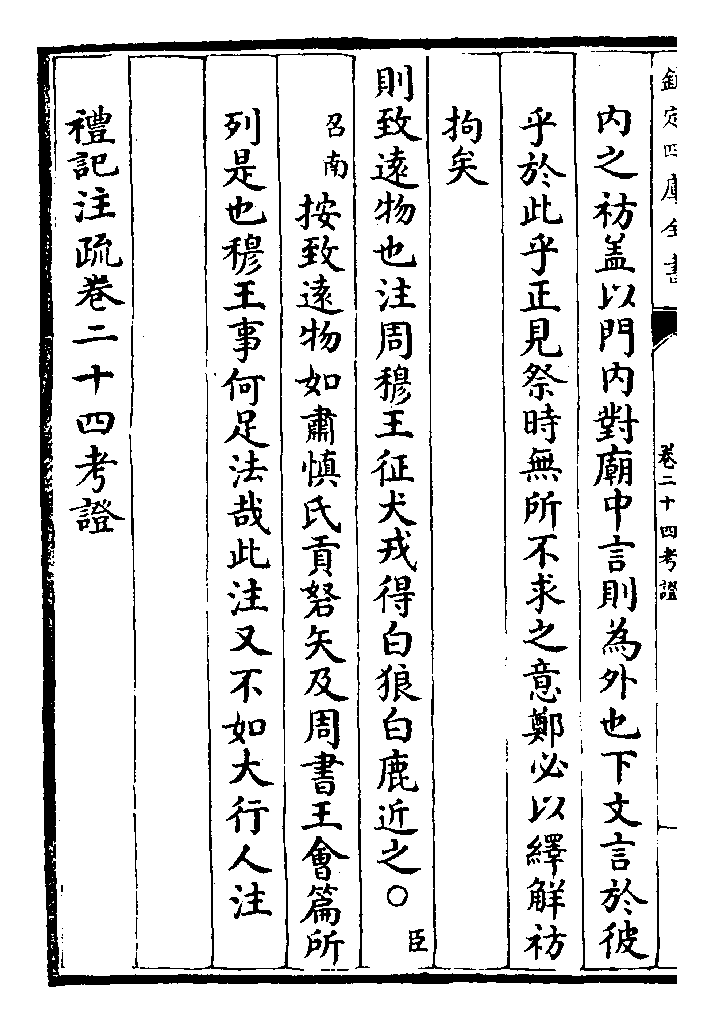 欽定四庫全書
卷二十四考證
內之祊葢以門內對廟中言則為外也下文言於彼
乎於此乎正見祭時無所不求之意鄭必以繹解祊
拘矣
則致遠物也注周穆王征犬戎得白狼白鹿近之○臣
召南按致遠物如肅慎氏貢砮矢及周書王會篇所
列是也穆王事何足法哉此注又不如大行人注
禮記注疏卷二十四考證